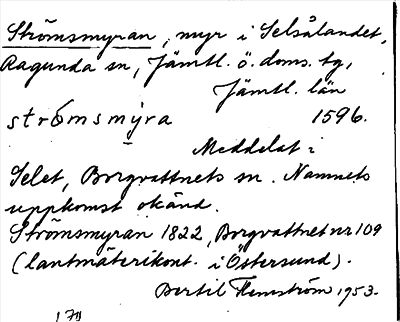 Strömsmyran, myr i Selsålandet,
Ragunda sn, Jämtl. ö. doms. tg,
Jämtl. län
strömsmýra 1596.
Meddelat i
Selet, Borgvattnets sn. Namnets
uppkomst okänd.
Strömsmyran 1822, Borgvattnet nr 109
(lantmäterikont. i Östersund).
Bertil Flemström 1953.